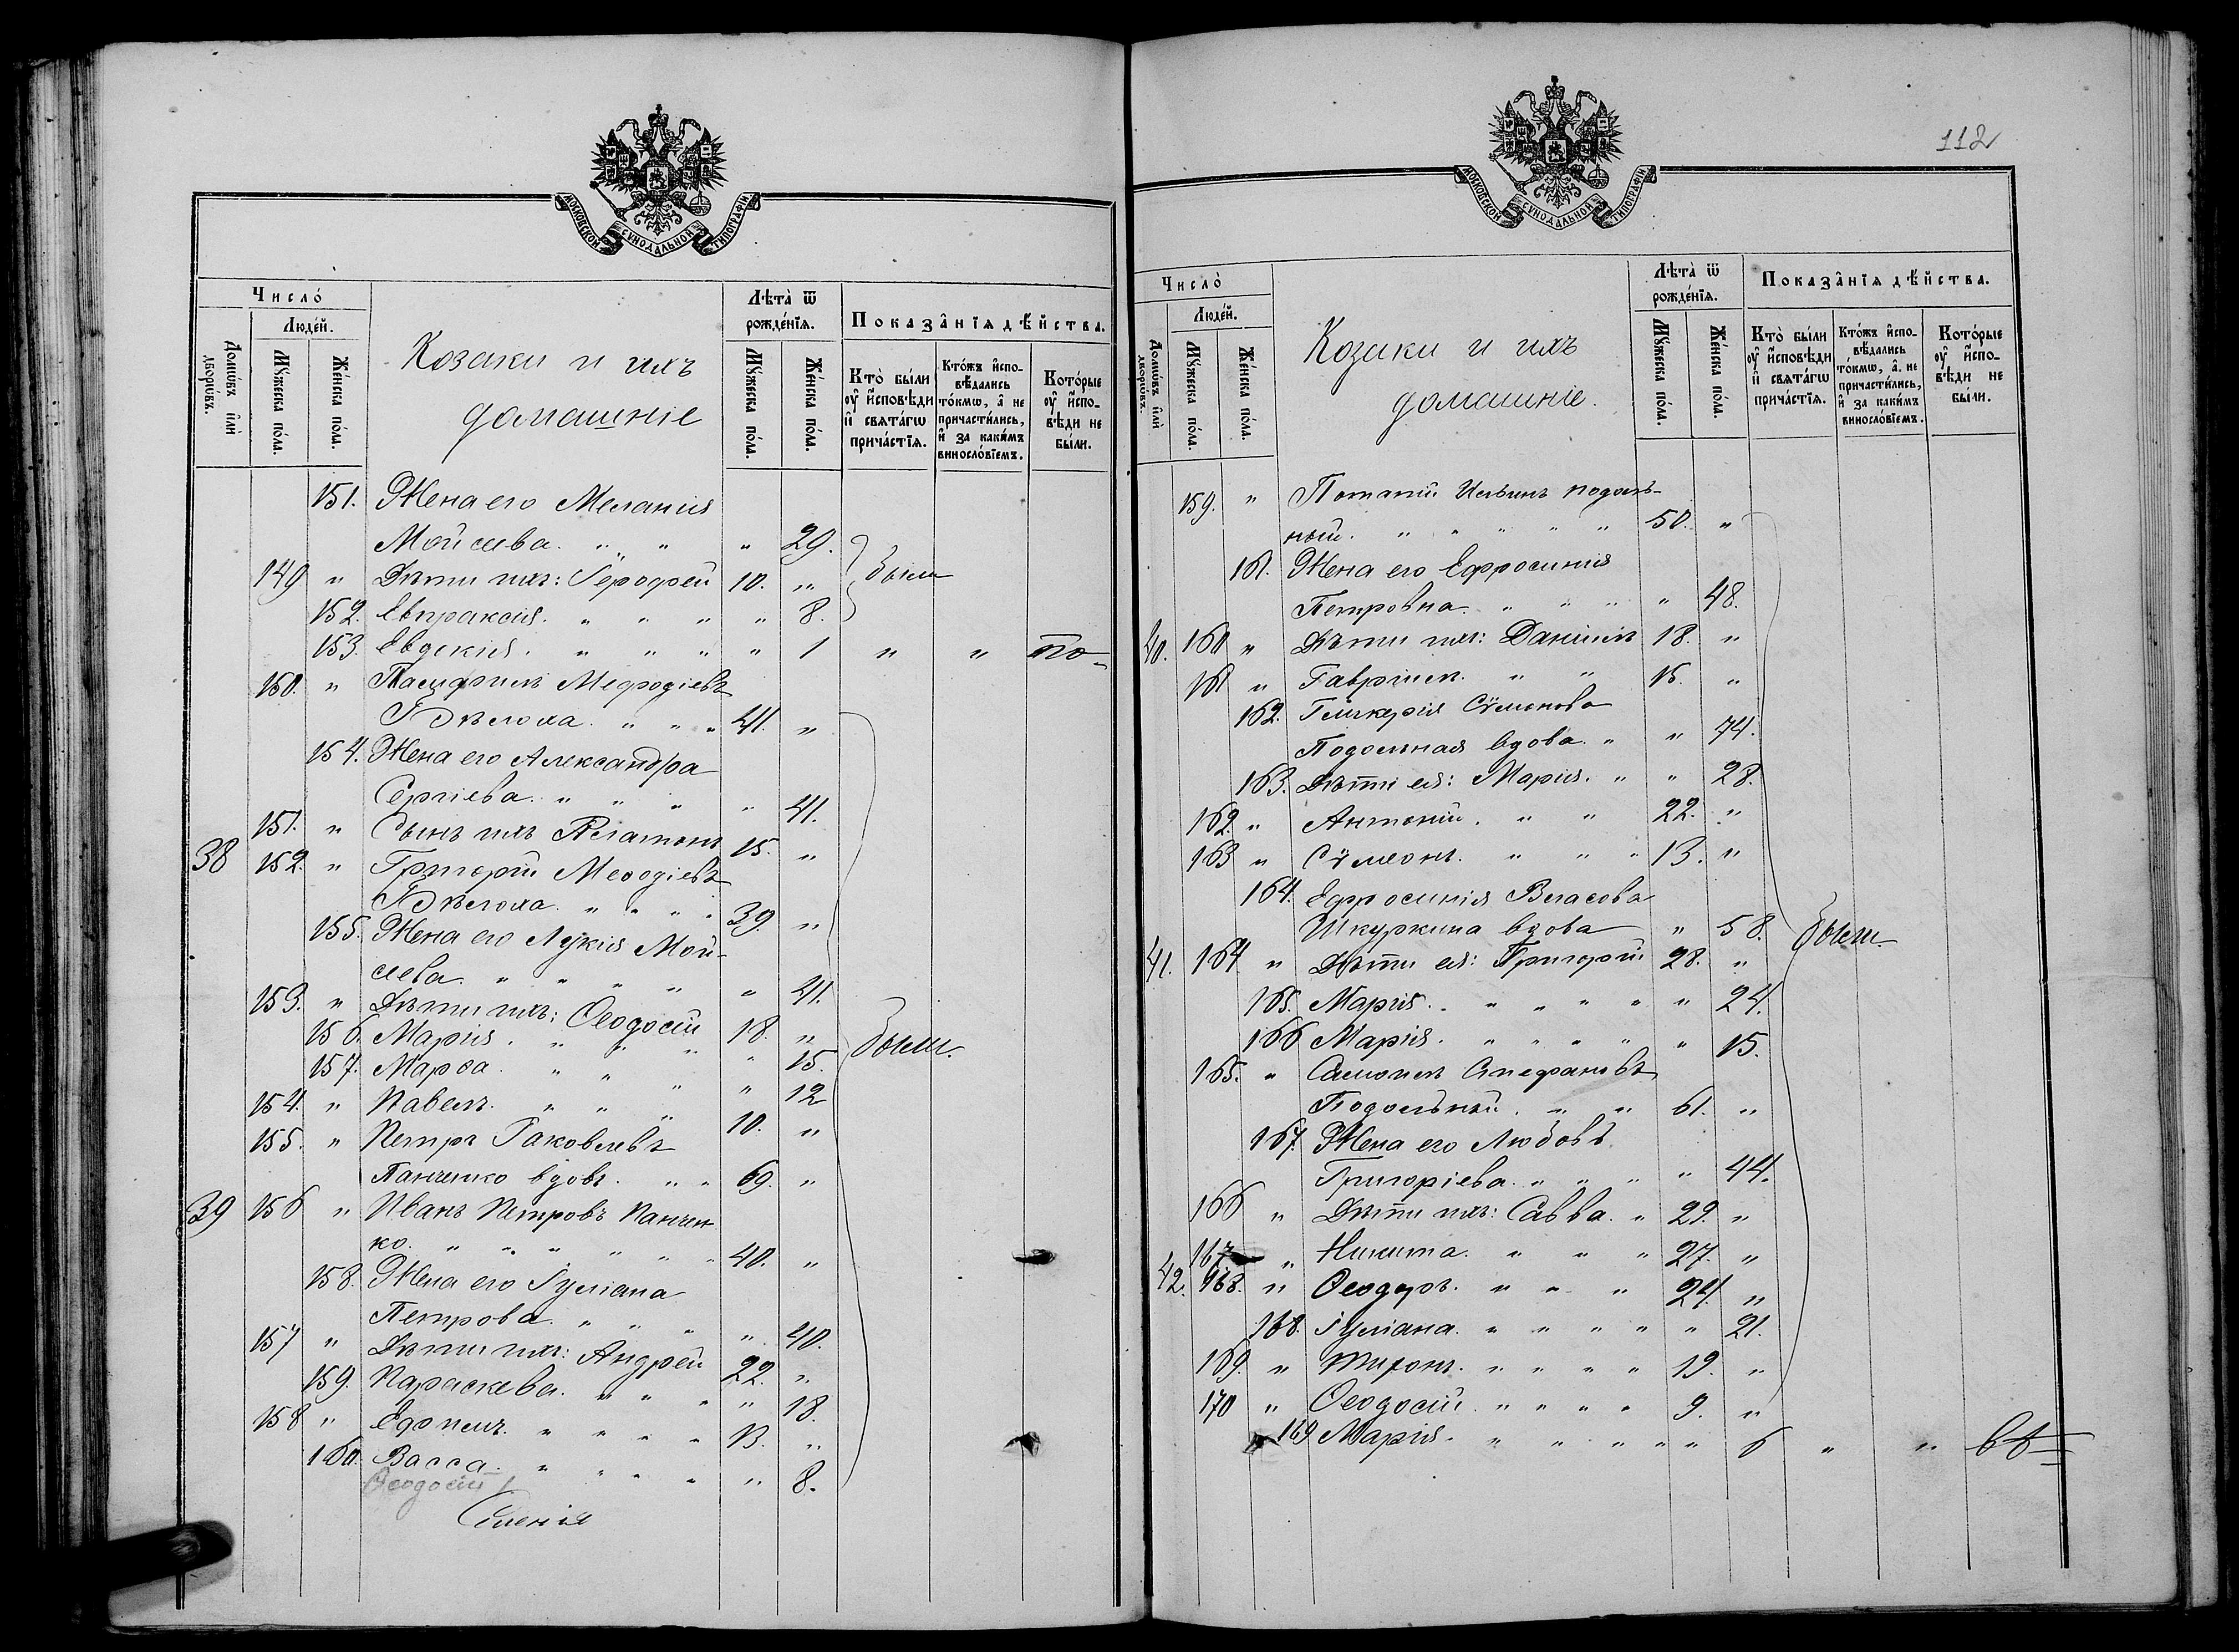 МОСКОВСКОЙ СѴНОДАЛЬНОЙ ТИПОГРАФІИ
Число̀
Людей.
Домѡвъ и҆лѝ дворѡвъ.
Мꙋжеска пола.
Женска пола.
Козаки и ихъ
домашніе
Лѣта̀ ѿ
рожденїѧ.
Мꙋжеска пола.
Женска пола.
Показанїѧ дѣйства.
Кто̀ были оу҆ и҆сповѣди и҆ свѧтагѡ причастїѧ.
Ктожъ и҆сповѣдались токмѡ, а҆ не причастились, и҆ за какимъ винословїемъ.
Которые оу҆ и҆сповѣди не были.
151. Жена его Меланія
Мойсеева. " " " 29.
149 " Дѣти ихъ: Іерофей 10. "
были
152. Евпраксія. " " " " 8.
153. Евдокія. " " " " 1 " " по
150. " Памфилъ Меѳодіевъ
Бѣлоха. " " " 41. "
154. Жена его Александра
Сергіева. " " " " 41.
151. " Сынъ ихъ Платонъ 15. "
38 152. " Григорій Меѳодіевъ
Бѣлоха. " " " 39. "
155. Жена его Лукія Мой-
сеева. " " " " " 41.
153. " Дѣти ихъ: Ѳеодосій 18. "
156. Марія. " " " " 15.
были.
157. Марѳа. " " " " 12
154. " Павелъ. " " " 10. "
155. " Петръ Іаковлевъ
Панченко вдовъ. " " 69. "
39 156 " Иванъ Петровъ Панчен
ко. " " " " " " 40. "
158. Жена его Іуліана
Петрова. " " " " 40.
157 " Дѣти ихъ: Андрей 22. "
159. Параскева. " " " " 18.
158 " " " " " 13. "
160. Васса. " " " " " 8.
Ѳеодосій
Ксенія
112
МОСКОВСКОЙ СѴНОДАЛЬНОЙ ТИПОГРАФІИ
Число̀
Людей.
Домѡвъ и҆лѝ дворѡвъ.
Мꙋжеска пола.
Женска пола.
Козаки и ихъ
домашніе.
Лѣта̀ ѿ
рожденїѧ.
Мꙋжеска пола.
Женска пола.
Показанїѧ дѣйства.
Кто̀ были оу҆ и҆сповѣди и҆ свѧтагѡ причастїѧ.
Ктожъ и҆сповѣдались токмѡ, а҆ не причастились, и҆ за какимъ винословїемъ.
Которые оу҆ и҆сповѣди не были.
159. " Потапій Ильинъ Подоль-
ный. " " " " " 50. "
161. Жена его Ефросинія
Петровна. " " " " 48.
40. 160 " Дѣти ихъ: Даніилъ 18. "
161 " Гавріилъ. " " 15. "
162. Гликерія Сѵмеонова
Подольная вдова. " " 74.
163. Дѣти ея: Марія. " " 28.
162. " Антоній. " " 22. "
163 " Сѵмеонъ. " " " 13. "
164. Ефросинія Власова
Шкуркина вдова " 58.
были.
41. 164 " Дѣти ея: Григорій 28. "
165. Марія. " " " " " 24.
166 Марія. " " " " " 15.
165. " Самоилъ Стефановъ
Подольный. " " 61. "
167. Жена его Любовь
Григоріева. " " " " 44.
166 " Дѣти ихъ: Савва. " 29. "
167. " Никита. " " " 27. "
42. 168. " Ѳеодоръ. " " " 24. "
168. Іуліана. " " " " " 21.
169. " Тихонъ. " " " " 19. "
170 " Ѳеодосій. " " " " 9. "
169 Марія. " " " " " 6 " "